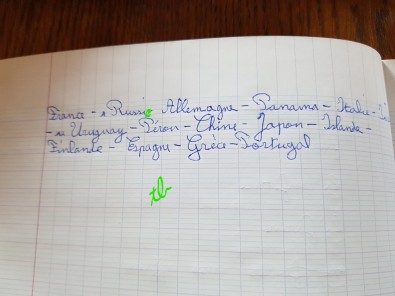 France - Russie Allemagne - Panama - Italie -
- Uruguay - Pérou - Chine - Japon - Islande -
Finlande - Espagne - Grèce - Portugal
tb